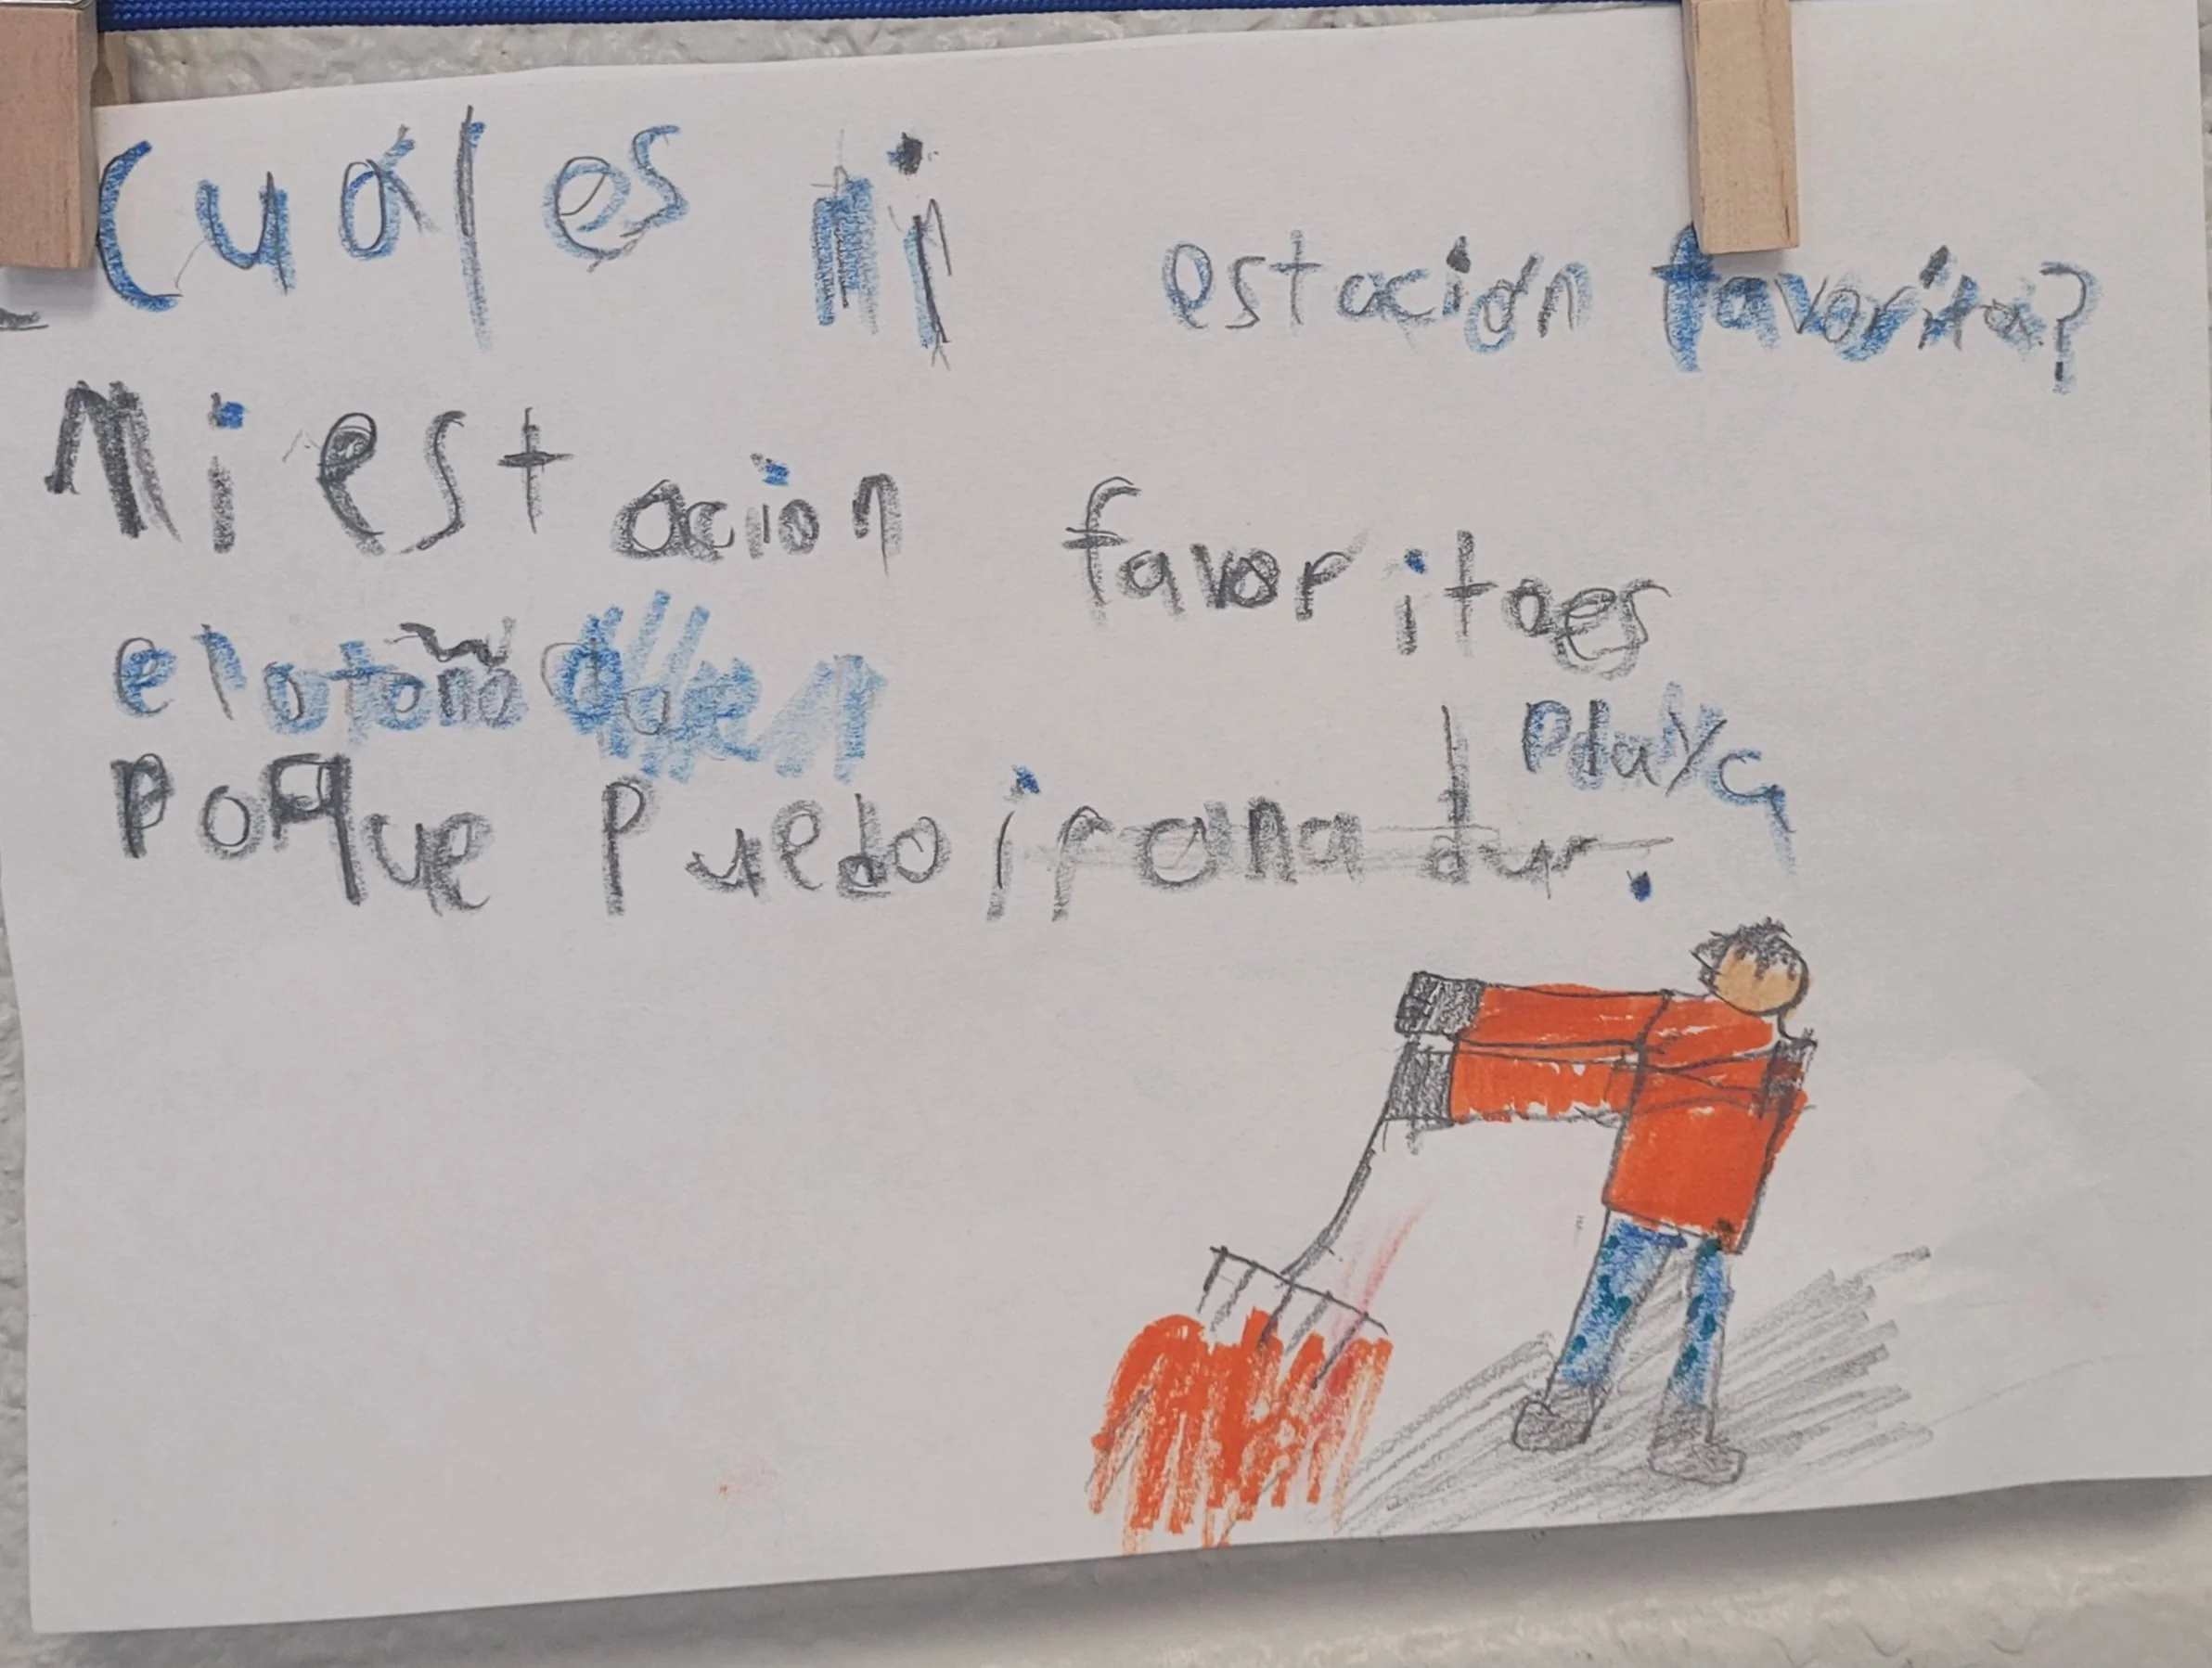 Cuál es mi estación favorita?
Mi estacion favorita es
el otoño
playa
poque puedo ir a nadur.